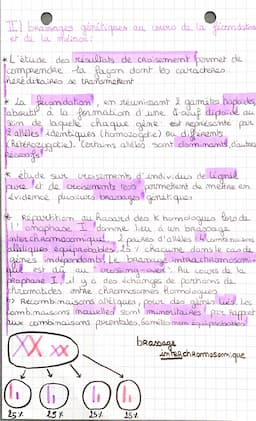 II) brassages génétiques au cours de la fécondation
et de la méiose:
* L'étude des résultats de croisement permet de
comprendre la façon dont les caractères
héréditaires se transmettent
* La fécondation, en réunissant 2 gamètes haploïdes,
aboutit à la formation d'une ¢ œuf diploïde au
sein de laquelle chaque gène est représenté par
2 allèles identiques (homozygote) ou différents
(hétérozygote). Certains allèles sont dominants, d'autres
récessifs
* étude sur croisements d'individus de lignée
pure et de croisements tests permettent de mettre en
évidence plusieurs brassages génétiques
* Répartition au hasard des K homologues lors de
anaphase I donne lieu à un brassage
interchromosomique. 2 paires d'allèles 4 combinaisons
alléliques équiprobables 25% chacune dans le cas de
gènes indépendants. Le brassage intrachromosomi-
que est dû au crossing-over: Au cours de la
Prophase I, il y a des échanges de portions de
chromatides entre chromosomes homologues
=> Recombinaisons alléliques, pour des gènes liés. Les
combinaisons nouvelles sont minoritaires par rapport
aux combinaisons parentales. Gamètes non équiprobables
brassage
interchromosomique
25% 25% 25% 25%